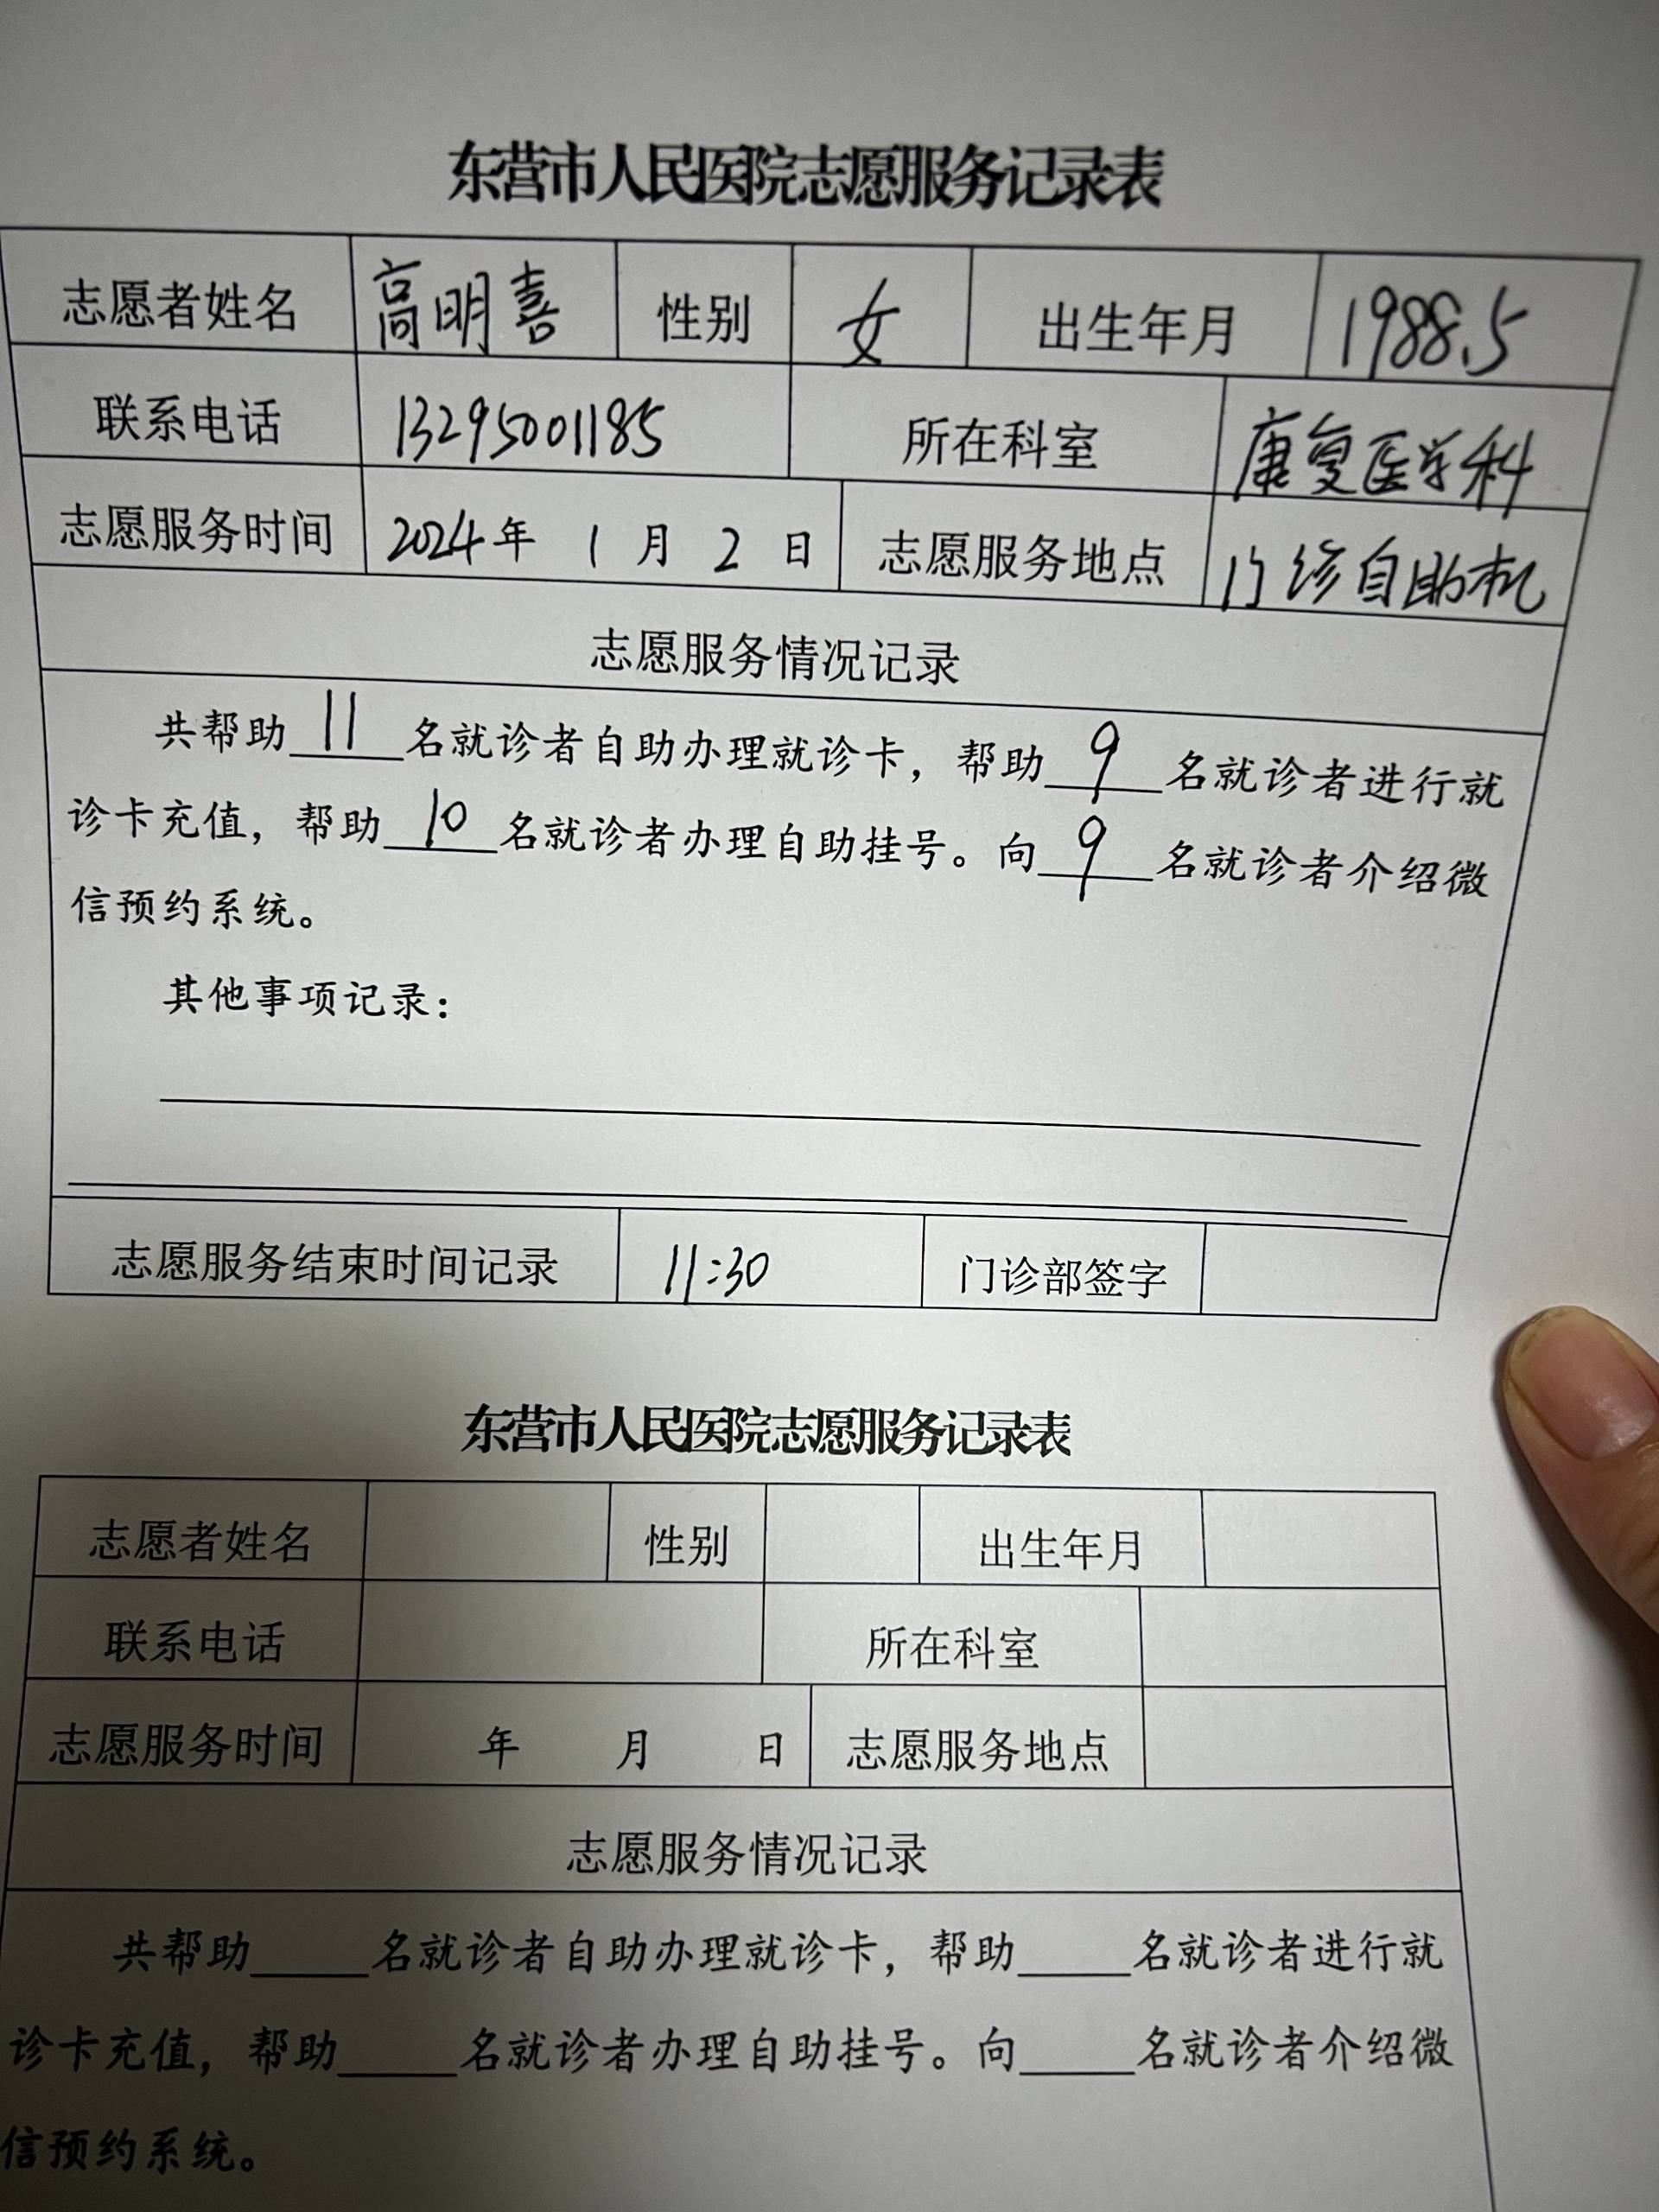 东营市人民医院志愿服务记录表
志愿者姓名 高明喜 性别 女 出生年月 1988.5
联系电话 13295001185 所在科室 康复医学科
志愿服务时间 2024年 1 月 2 日 志愿服务地点 门诊自助机
志愿服务情况记录
共帮助 11 名就诊者自助办理就诊卡，帮助 9 名就诊者进行就
诊卡充值，帮助 10 名就诊者办理自助挂号。向 9 名就诊者介绍微
信预约系统。
其他事项记录：
志愿服务结束时间记录 11:30 门诊部签字
东营市人民医院志愿服务记录表
志愿者姓名 性别 出生年月
联系电话 所在科室
志愿服务时间 年 月 日 志愿服务地点
志愿服务情况记录
共帮助_____名就诊者自助办理就诊卡，帮助_____名就诊者进行就
诊卡充值，帮助_____名就诊者办理自助挂号。向_____名就诊者介绍微
信预约系统。